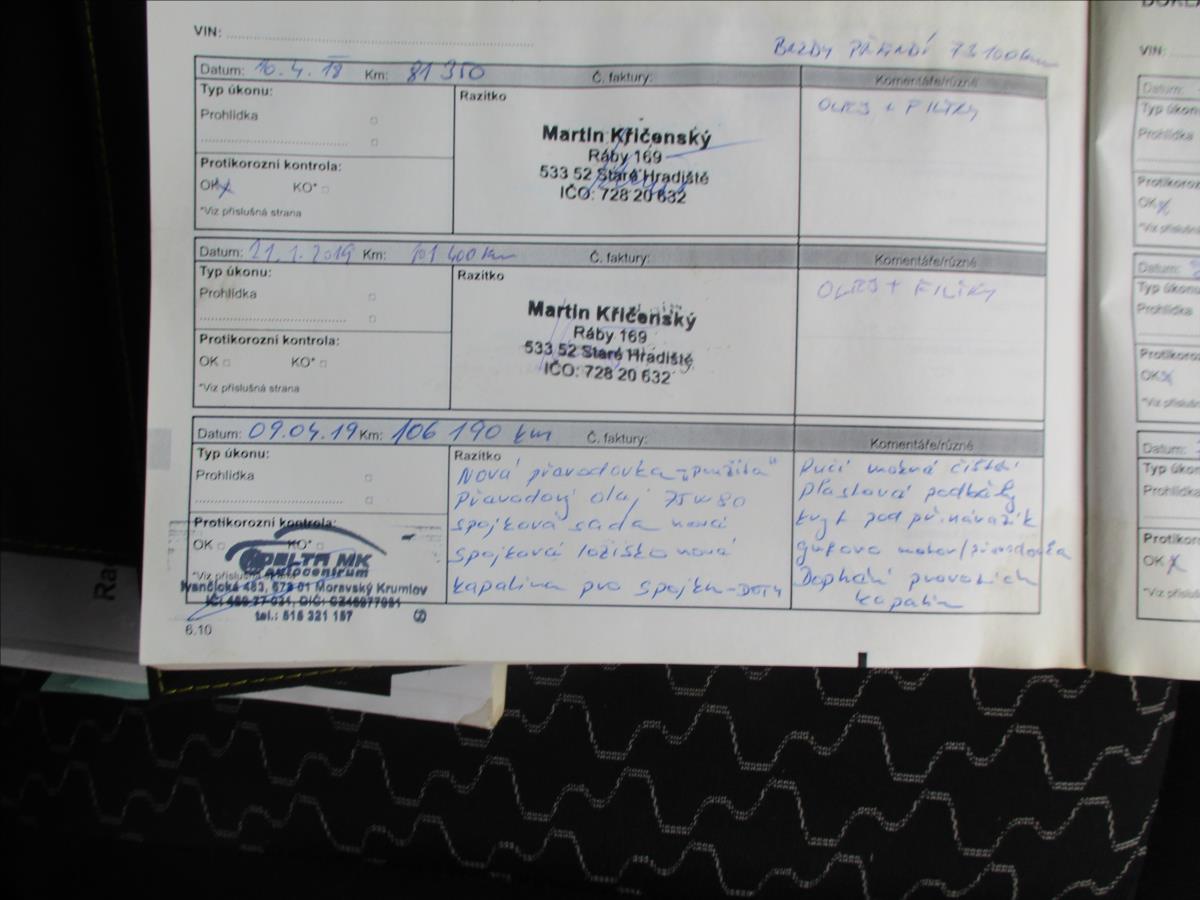 VIN:
BRZDY PŘEDNÍ 73 100 km
Datum: 10. 4. 18 Km: 81 350 Č. faktury: Komentáře/různé
Typ úkonu:
Prohlídka
Razítko
Martin Křičenský
Ráby 169
533 52 Staré Hradiště
IČO: 728 20 632
OLEJ + FILTRY
Protikorozní kontrola:
OK KO*
*Viz příslušná strana
Datum: 21. 1. 2019 Km: 101 400 km Č. faktury: Komentáře/různé
Typ úkonu:
Prohlídka
Razítko
Martin Křičenský
Ráby 169
533 52 Staré Hradiště
IČO: 728 20 632
OLEJ + FILTRY
Protikorozní kontrola:
OK KO*
*Viz příslušná strana
Datum: 09.04.19 Km: 106 190 km Č. faktury: Komentáře/různé
Typ úkonu:
Prohlídka
Razítko
Nová převodovka - "použitá"
Převodový olej 75W80
spojková sada nová
spojková ložisko nová
kapalina pro spojku - DOT4
Ruční čištění
plastová podběhy
kryt pod př. nárazník
motor/převodovka
Doplnění provozních
kapalin
Protikorozní kontrola:
OK KO*
*Viz příslušná
DELTA MK
autocentrum
Ivančická 483, 672 01 Moravský Krumlov
tel.: 515 321 157
6.10
VIN:
Datum:
Typ úkonu
Prohlídka
Protikoroz
OK
*Viz příslušn
Datum:
Typ úkonu
Prohlídka
Protikoroz
OK
*Viz příslušn
Datum:
Typ úkonu
Prohlídka
Protikoroz
OK
*Viz příslušn